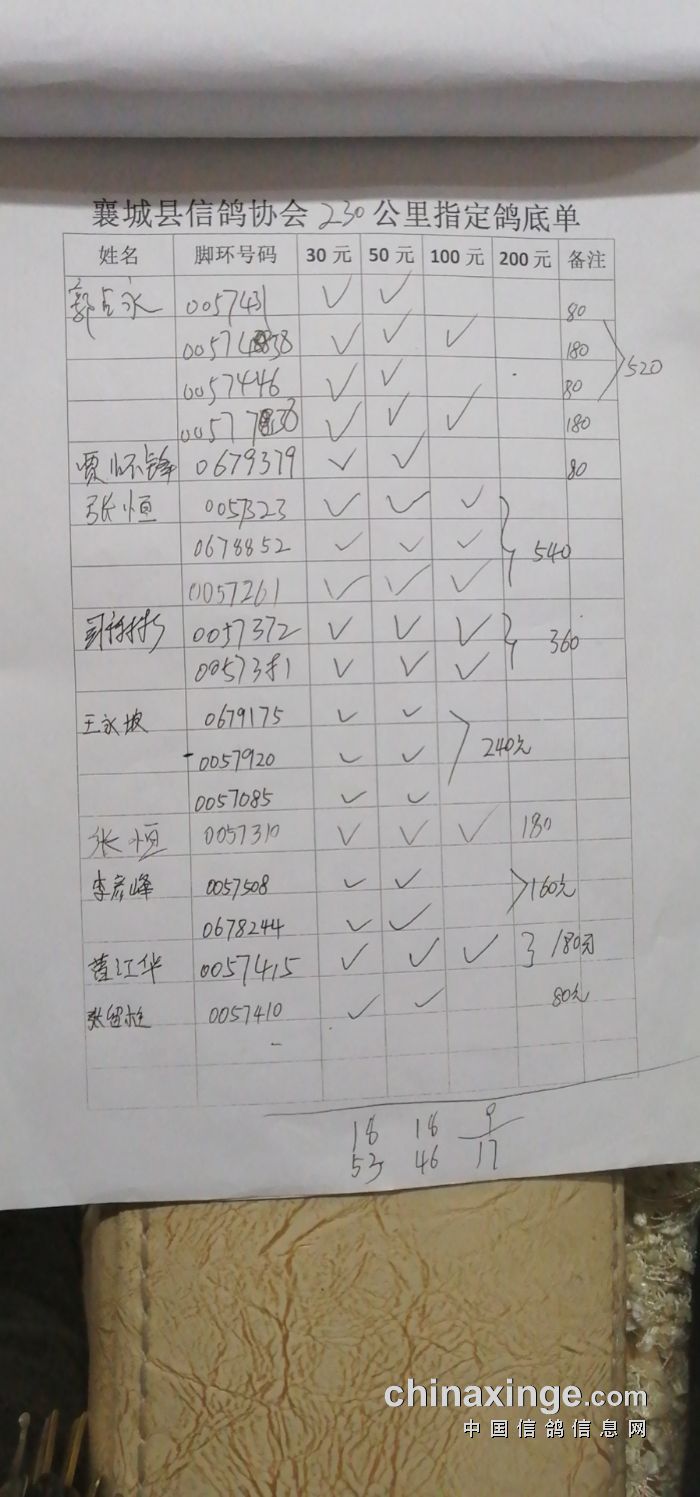 襄城县信鸽协会230公里指定鸽底单
姓名 脚环号码 30元 50元 100元 200元 备注
郭占永 0057431 ✓ ✓ 80
✓ ✓ ✓ 180
0057446 ✓ ✓ 80
✓ ✓ ✓ 180
520
贾怀锋 0679379 ✓ ✓ 80
张恒 0057323 ✓ ✓ ✓
0678852 ✓ ✓ ✓
0057261 ✓ ✓ ✓
540
0057372 ✓ ✓ ✓
0057381 ✓ ✓ ✓
360
王永坡 0679175 ✓ ✓
0057920 ✓ ✓
0057085 ✓ ✓
240元
张恒 0057310 ✓ ✓ ✓ 180
李彦峰 0057508 ✓ ✓
0678244 ✓ ✓
160元
董江华 0057415 ✓ ✓ ✓ 180元
张留柱 0057410 ✓ ✓ 80元
18 18 9
53 46 17
chinaxinge.com
中国信鸽信息网